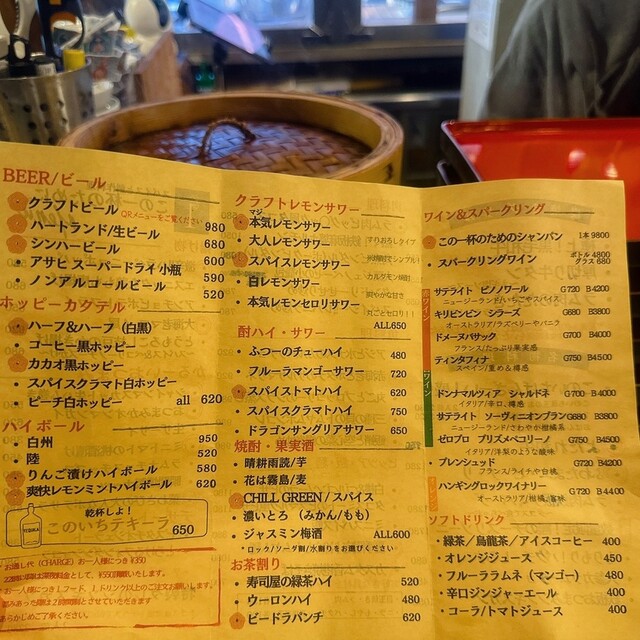 BEER/ビール
クラフトビール
QRメニューをご覧ください
ハートランド/生ビール 980
シンハービール 680
アサヒ スーパードライ 小瓶 600
ノンアルコールビール 590
520
ホッピーカクテル
ハーフ&ハーフ（白黒）
コーヒー黒ホッピー
カカオ黒ホッピー
スパイスクラマト白ホッピー
ピーチ白ホッピー all 620
ハイボール
白州 950
陸 520
りんご漬けハイボール 580
爽快レモンミントハイボール 620
乾杯しよ！
このいちテキーラ 650
お通し代（CHARGE）お一人様につき¥350
クラフトレモンサワー
マジ
本気レモンサワー
大人レモンサワー すりおろしタイプ
スパイスレモンサワー
白レモンサワー カルダモン焼酎
本気レモンセロリサワー
ALL650
酎ハイ・サワー
ふつーのチューハイ 480
フルーラマンゴーサワー 720
スパイストマトハイ 620
スパイスクラマトハイ 750
ドラゴンサングリアサワー 650
焼酎・果実酒
晴耕雨読/芋
花は霧島/麦
CHILL GREEN / スパイス
濃いとろ（みかん/もも）
ジャスミン梅酒 ALL600
・ロック/ソーダ割/水割りをお選びください
お茶割り
寿司屋の緑茶ハイ 520
ウーロンハイ 480
ビードラパンチ 620
ワイン&スパークリング
この一杯のためのシャンパン 1本9800
スパークリングワイン ボトル 4800
グラス 680
サテライト ピノノワール G720 B4200
ニュージーランド/いちごやスパイス
キリビンビン シラーズ G680 B3800
オーストラリア/ラズベリーやバニラ
ドメーヌバサック G700 B4000
フランス/たっぷり果実感
ティンタフィナ G750 B4500
スペイン/重め&樽感
ドンナマルツィア シャルドネ G700 B4000
イタリア/辛口、樽感
サテライト ソーヴィニオンブラン G680 B3800
ニュージーランド/さわやか柑橘系
ゼロプロ プリズメペコリーノ G750 B4500
イタリア/洋梨のような酸味
ブレンシェッド G720 B4200
フランス/ライチや白桃
ハンギングロックワイナリー G720 B4400
オーストラリア/柑橘、旨味
ソフトドリンク
緑茶/烏龍茶/アイスコーヒー 400
オレンジジュース 450
フルーララムネ（マンゴー） 480
辛口ジンジャーエール 400
コーラ/トマトジュース 400